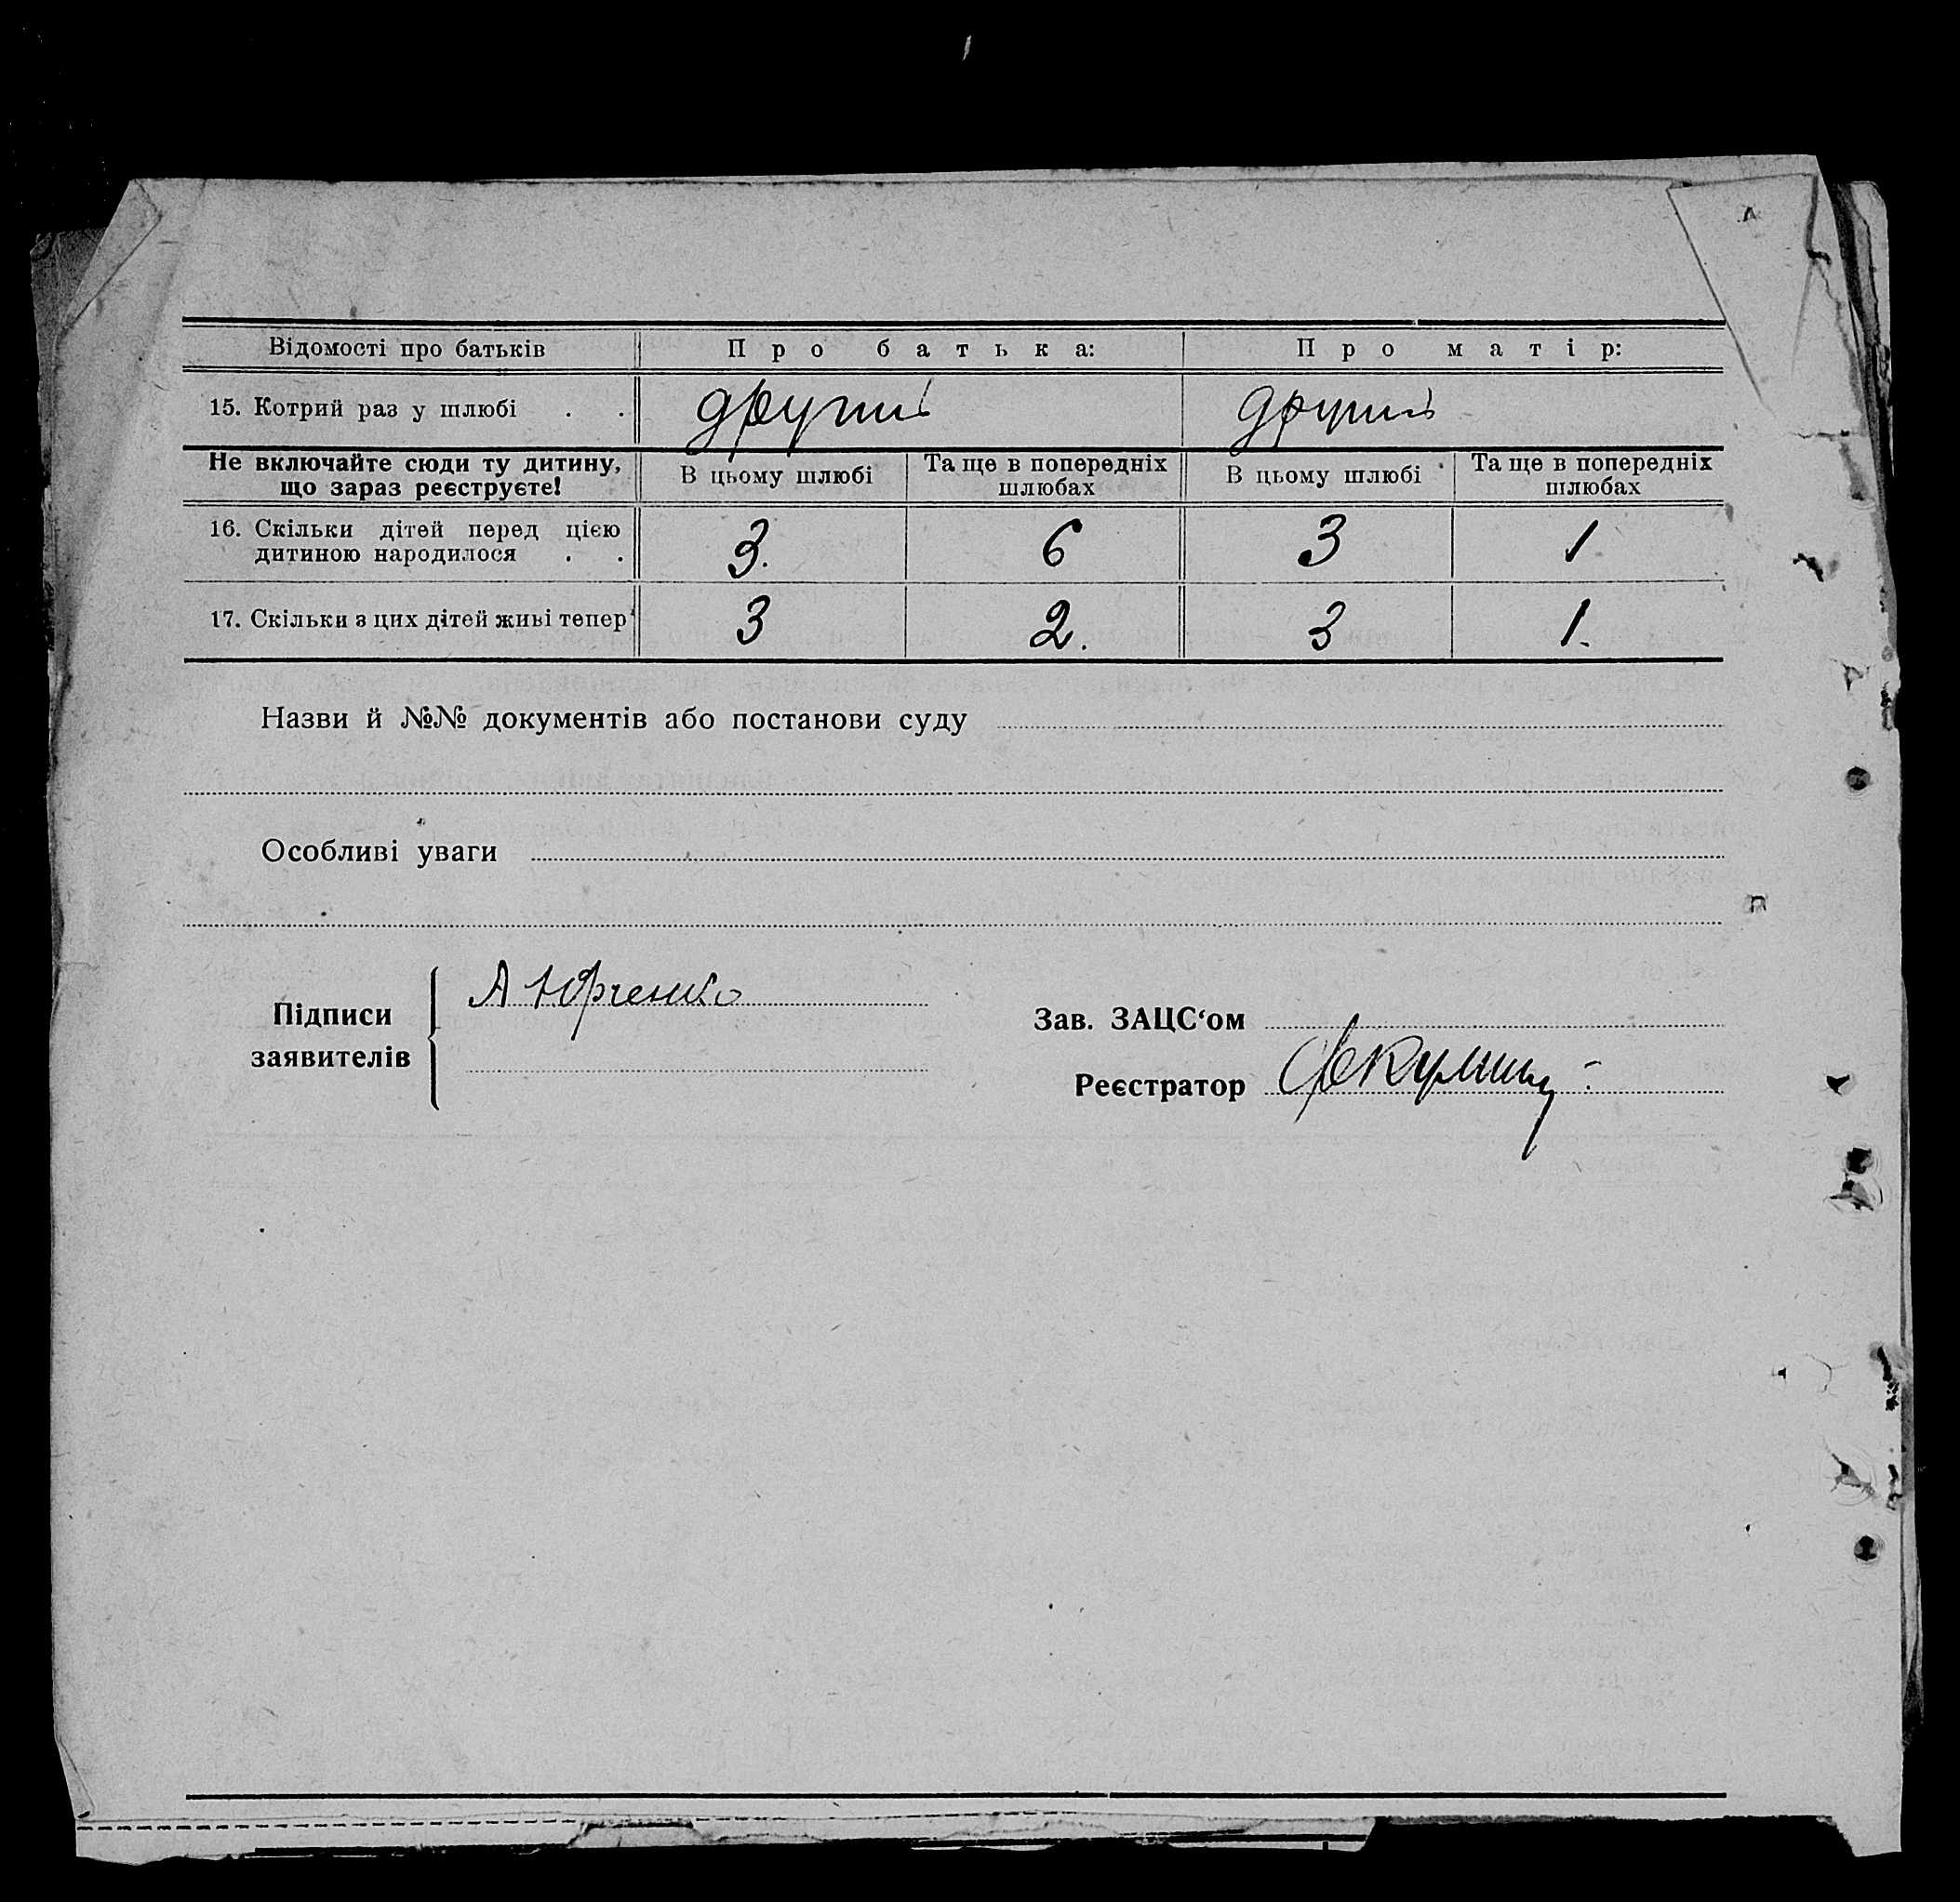 Відомості про батьків Про батька: Про матір:
15. Котрий раз у шлюбі . . другий другий
Не включайте сюди ту дитину, що зараз реєструєте! В цьому шлюбі Та ще в попередніх шлюбах В цьому шлюбі Та ще в попередніх шлюбах
16. Скільки дітей перед цією
дитиною народилося . . 3. 6 3 1
17. Скільки з цих дітей живі тепер 3 2. 3 1.
Назви й №№ документів або постанови суду
Особливі уваги
Підписи
заявителів
А Юрченко
Зав. ЗАЦС‘ом
Реєстратор